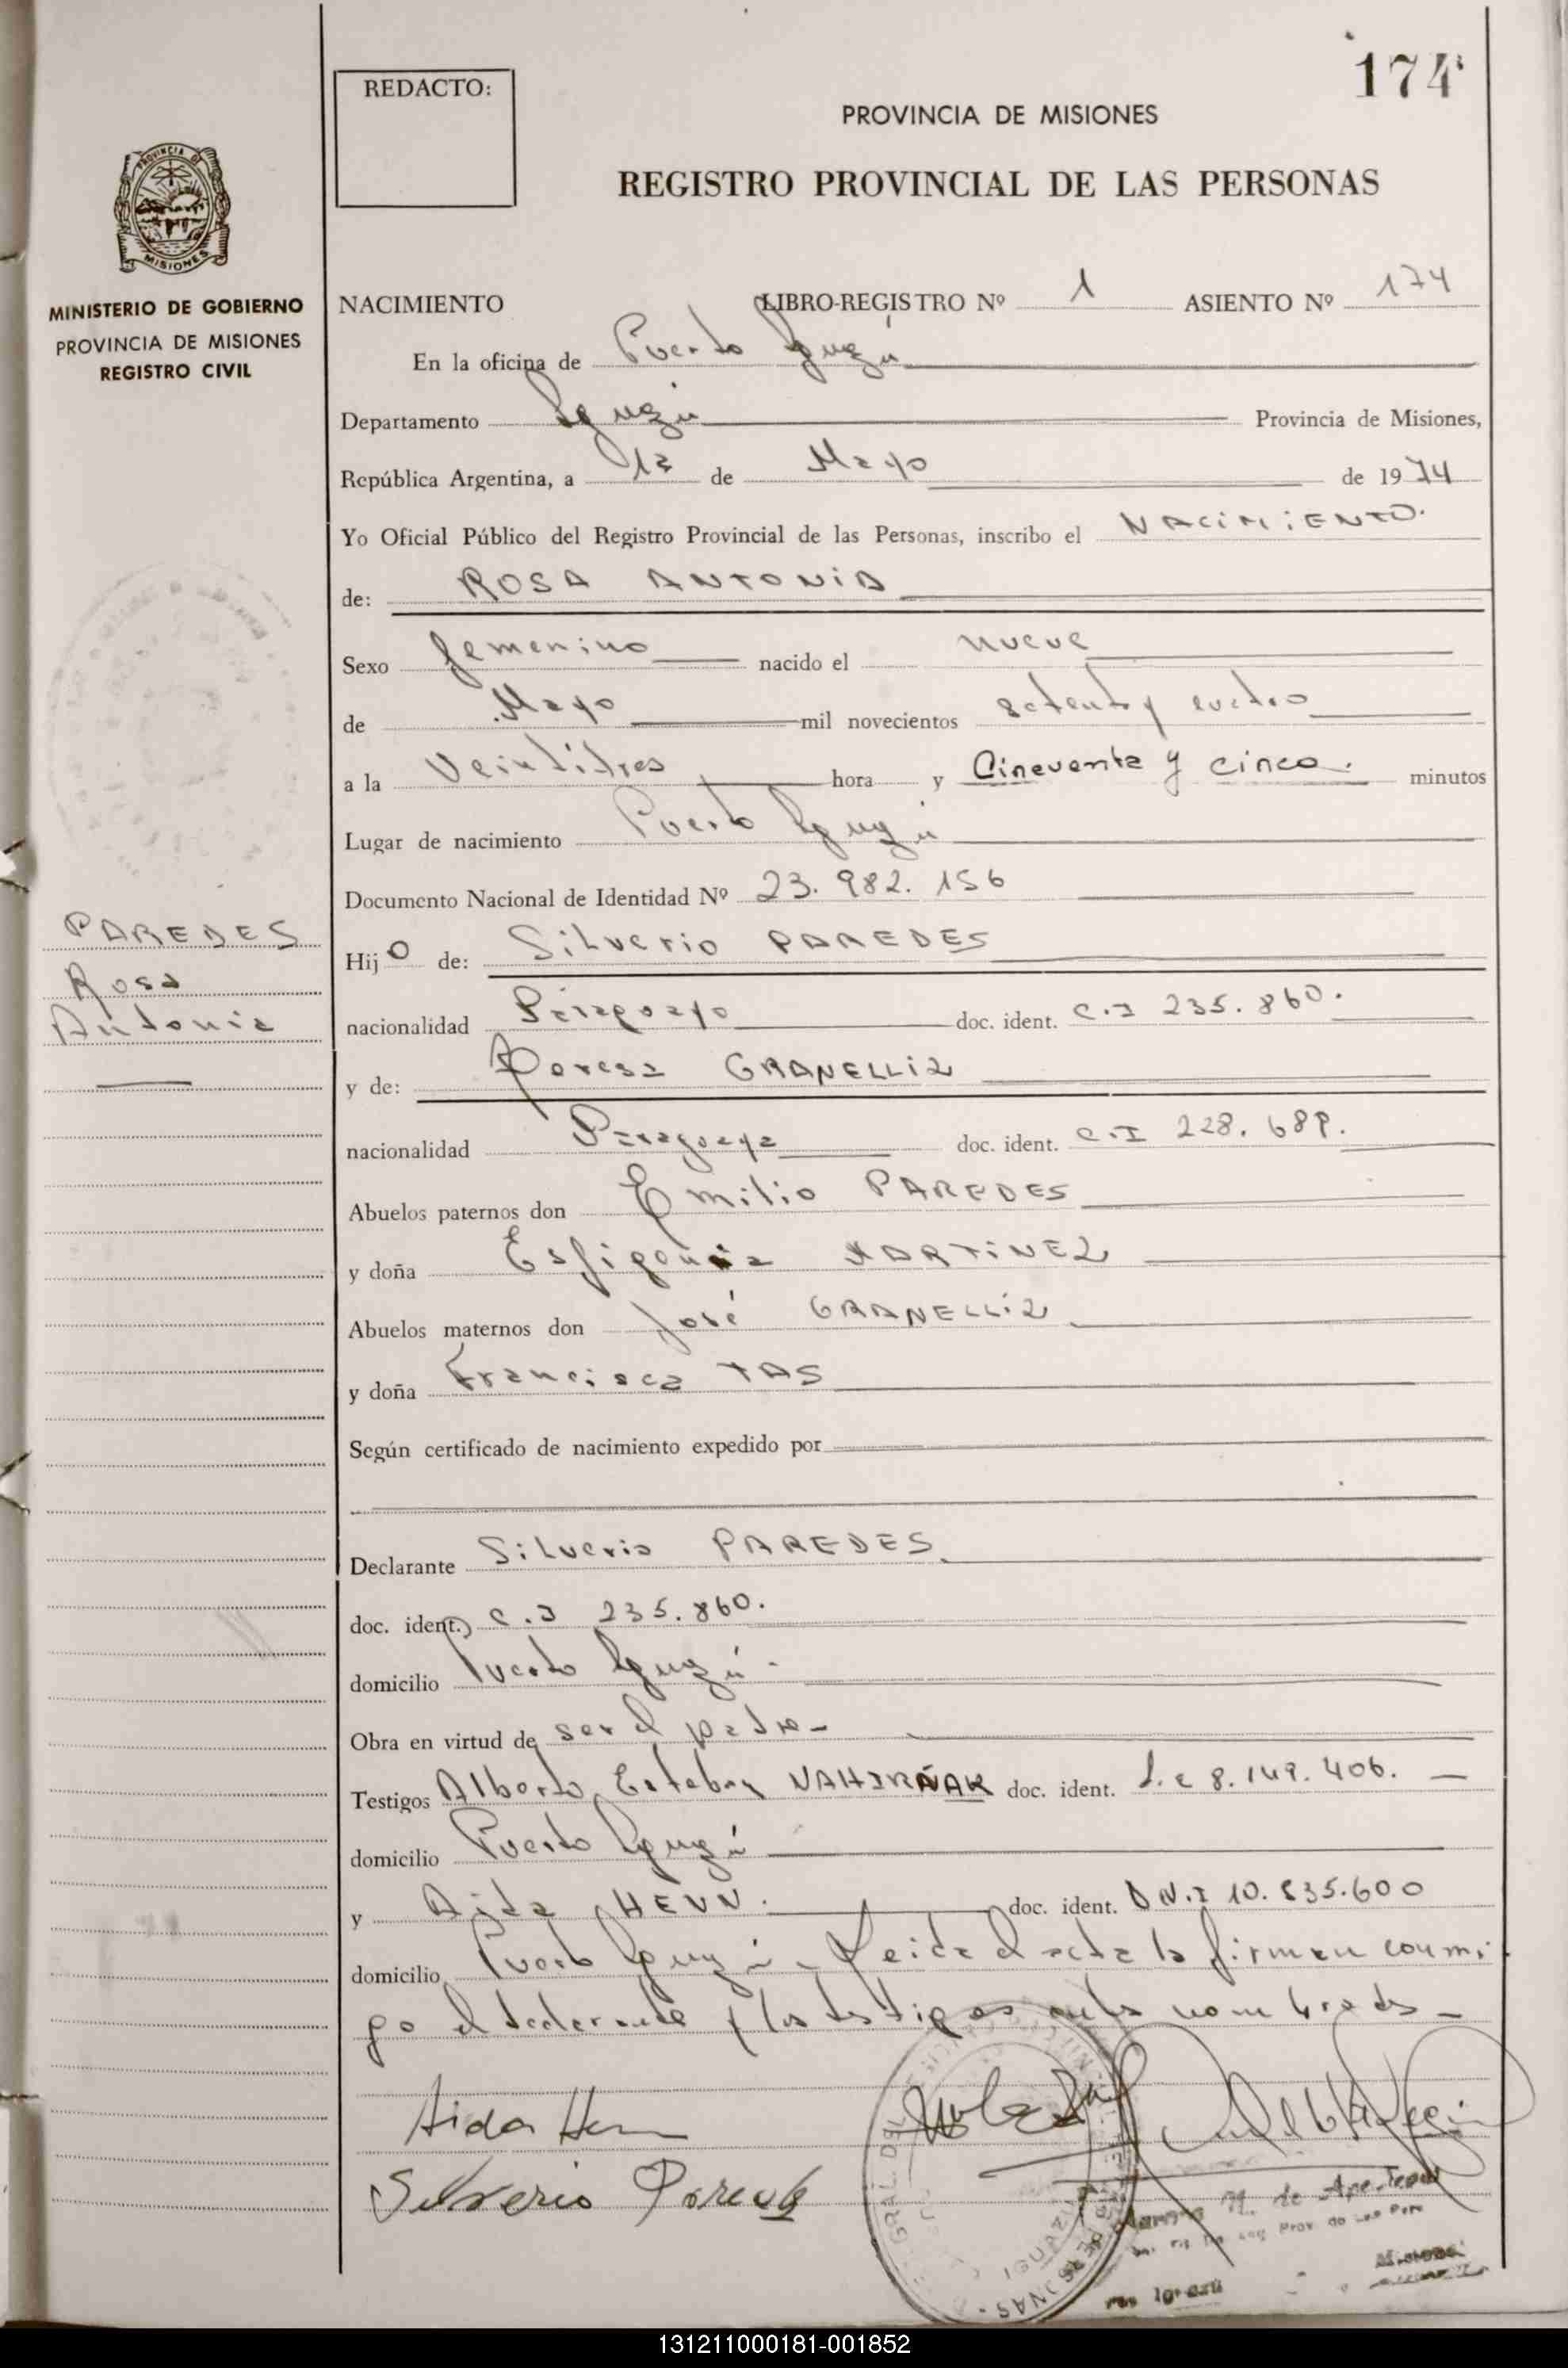 174
REDACTO:
PROVINCIA DE MISIONES
REGISTRO PROVINCIAL DE LAS PERSONAS
PROVINCIA DE
MISIONES
MINISTERIO DE GOBIERNO
PROVINCIA DE MISIONES
REGISTRO CIVIL
NACIMIENTO LIBRO-REGISTRO Nº 1 ASIENTO Nº 174
En la oficina de Puerto Iguazú
Departamento Iguazú Provincia de Misiones,
República Argentina, a 13 de Mayo de 1974
Yo Oficial Público del Registro Provincial de las Personas, inscribo el NACIMIENTO.
de: ROSA ANTONIA
Sexo femenino nacido el nueve
de Mayo mil novecientos setenta y cuatro
a la Veintitres hora y Cincuenta y cinco. minutos
Lugar de nacimiento Puerto Iguazú
Documento Nacional de Identidad Nº 23.982.156
PAREDES
Rosa
Antonia
Hijo de: Silverio PAREDES
nacionalidad Paraguayo doc. ident. C.I 235.860.
y de: GRANELLIZ
nacionalidad Paraguaya doc. ident. C.I 228.689.
Abuelos paternos don Emilio PAREDES
y doña Esfigenia MARTINEZ
Abuelos maternos don José GRANELLIZ
y doña Francisca TAS
Según certificado de nacimiento expedido por
Declarante Silverio PAREDES
doc. ident. C.I 235.860.
domicilio Puerto Iguazú.
Obra en virtud de ser el padre-
Testigos Alberto Esteban NAHIRÑAK doc. ident. L.E 8.149.406.
domicilio Puerto Iguazú
y Aida HENN. doc. ident. DN.I 10.835.600
domicilio Puerto Iguazú - Leida el acta la firman conmi
go el declarante y los testigos nombrados-
Aida Hen
Silverio Paredes